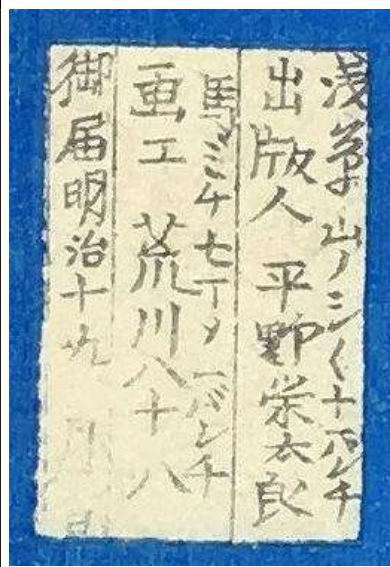 浅草山ノシク十バンチ
出版人 平野栄太郎
馬ミチ七丁メ一バンチ
画工 荒川八十八
御届明治十九 月 日